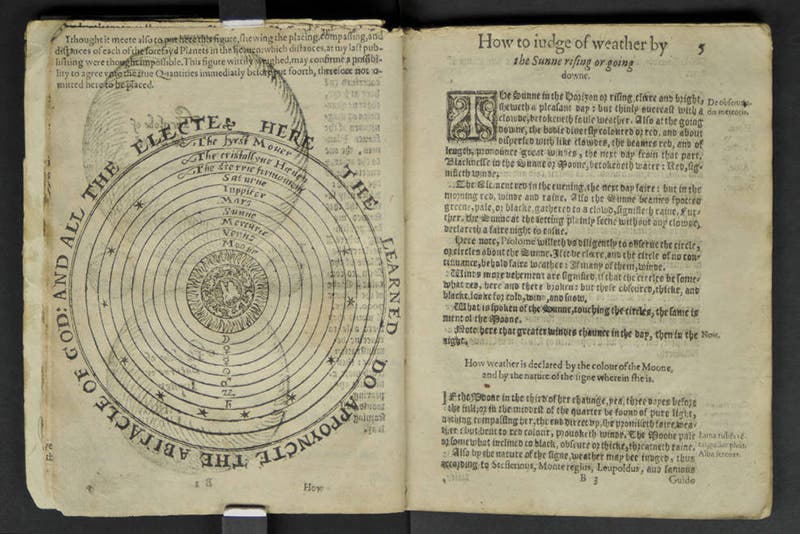 I thought it meete also to put here this figure, shewing the placing, compassing, and
distances of each of the foresayd Planets in the heauen: which distances, at my last pub-
lishing were thought impossible. This figure wittily weighed, may confirme a possibi-
lity to agree vnto the true Quantities immediatly before put fourth, therefore not o-
mitted here to be placed.
HERE THE LEARNED DO APPOYNCTE THE ABITACLE OF GOD: AND ALL THE ELECTE
The first Mouer
The cristallyne Heauen
The sterrie firmament
Saturne
Iuppiter
Mars
Sunne
Mercurie
Venus
Moone
B 2
How
How to iudge of weather by
5
the Sunne rising or going
downe.
THe Sunne in the Horizon or rising, cleare and bright,
sheweth a pleasant day: but thinly ouercast with a
clowde, betokeneth foule weather. Also at the going
downe, the bodie diuersly coloured or red, and about
dispersed with like clowdes, the beames red, and of
length, pronounce great windes, the next day from that part.
Blacknesse in the Sunne or Moone, betokeneth water: Red, sig-
nifieth winde.
De obserua-
The Element red in the euening, the next day faire: but in the
morning red, winde and raine. Also the Sunne beames spotted
greene, pale, or blacke, gathered to a clowd, signifieth raine. Fur-
ther, the Sunne at the setting plainly seene without any clowde,
declareth a faire night to ensue.
Here note, Ptolome willeth vs diligently to obserue the circle,
or circles about the Sunne. If it be cleare, and the circle of no con-
tinuance, behold faire weather: If many of them, winde.
Windes more vehement are signified, if that the circles be some-
what red, here and there broken: but these obscured, thicke, and
blacke, looke for cold, wind, and snow.
What is spoken of the Sunne, touching the circles, the same is
ment of the Moone.
Note here that greater windes chaunce in the day, then in the
night.
Note.
How weather is declared by the colour of the Moone,
and by the nature of the signe wherein she is.
IF the Moone in the third of her chaunge, yea, three dayes before
the full, or in the middest of the quarter be found of pure light,
nothing compassing her, the end directed vp, she promiseth faire wea-
ther: but bent to red colour, prouoketh winde. The Moone pale
or somewhat inclined to black, obscure or thicke, threatneth raine.
Also by the nature of the signe, weather may bee iudged, thus
according to Monte regius, Leupoldus, and famous
B 3
Guido